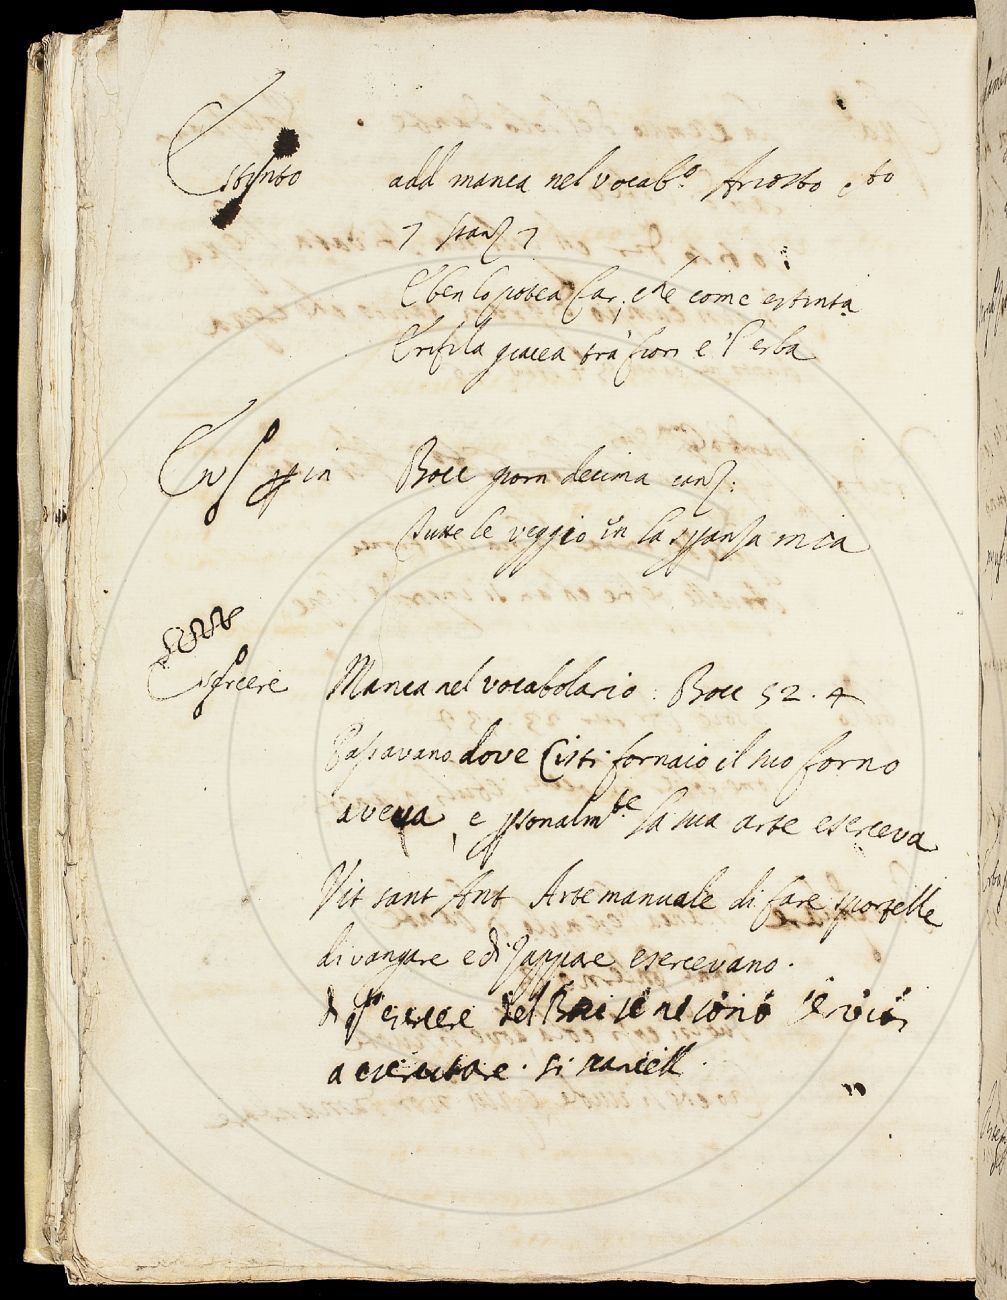 Estinto add manca nel vocab.o Ariosto c.to
7 stanz 7
E ben lo potea far, che come estinta
Erifila giacea tra' fiori e l'erba
Bocc giorn decima canz:
tutte le veggio in la speranza mia
Esercere Manca nel vocabolario: Bocc 52. 4
Passavano dove Cisti fornaio il suo forno
aveva, e psonalmte la sua arte eserceva
Vit sant Ant Arte manuale di fare sportelle
di vangare e di zappare esercevano.
esercere del
a esercitare. si cancell.